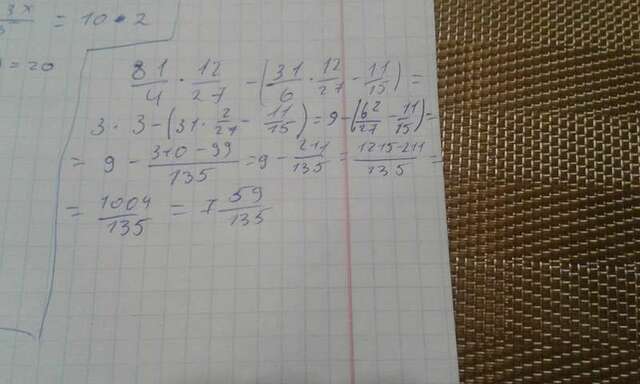 3x/3 = 10 · 2
= 20
81/4 · 12/27 - (31/6 · 12/27 - 11/15) =
3 · 3 - (31 · 2/27 - 11/15) = 9 - (62/27 - 11/15) =
= 9 - 310 - 99/135 = 9 - 211/135 = 1215 - 211/135 =
= 1004/135 = 7 59/135